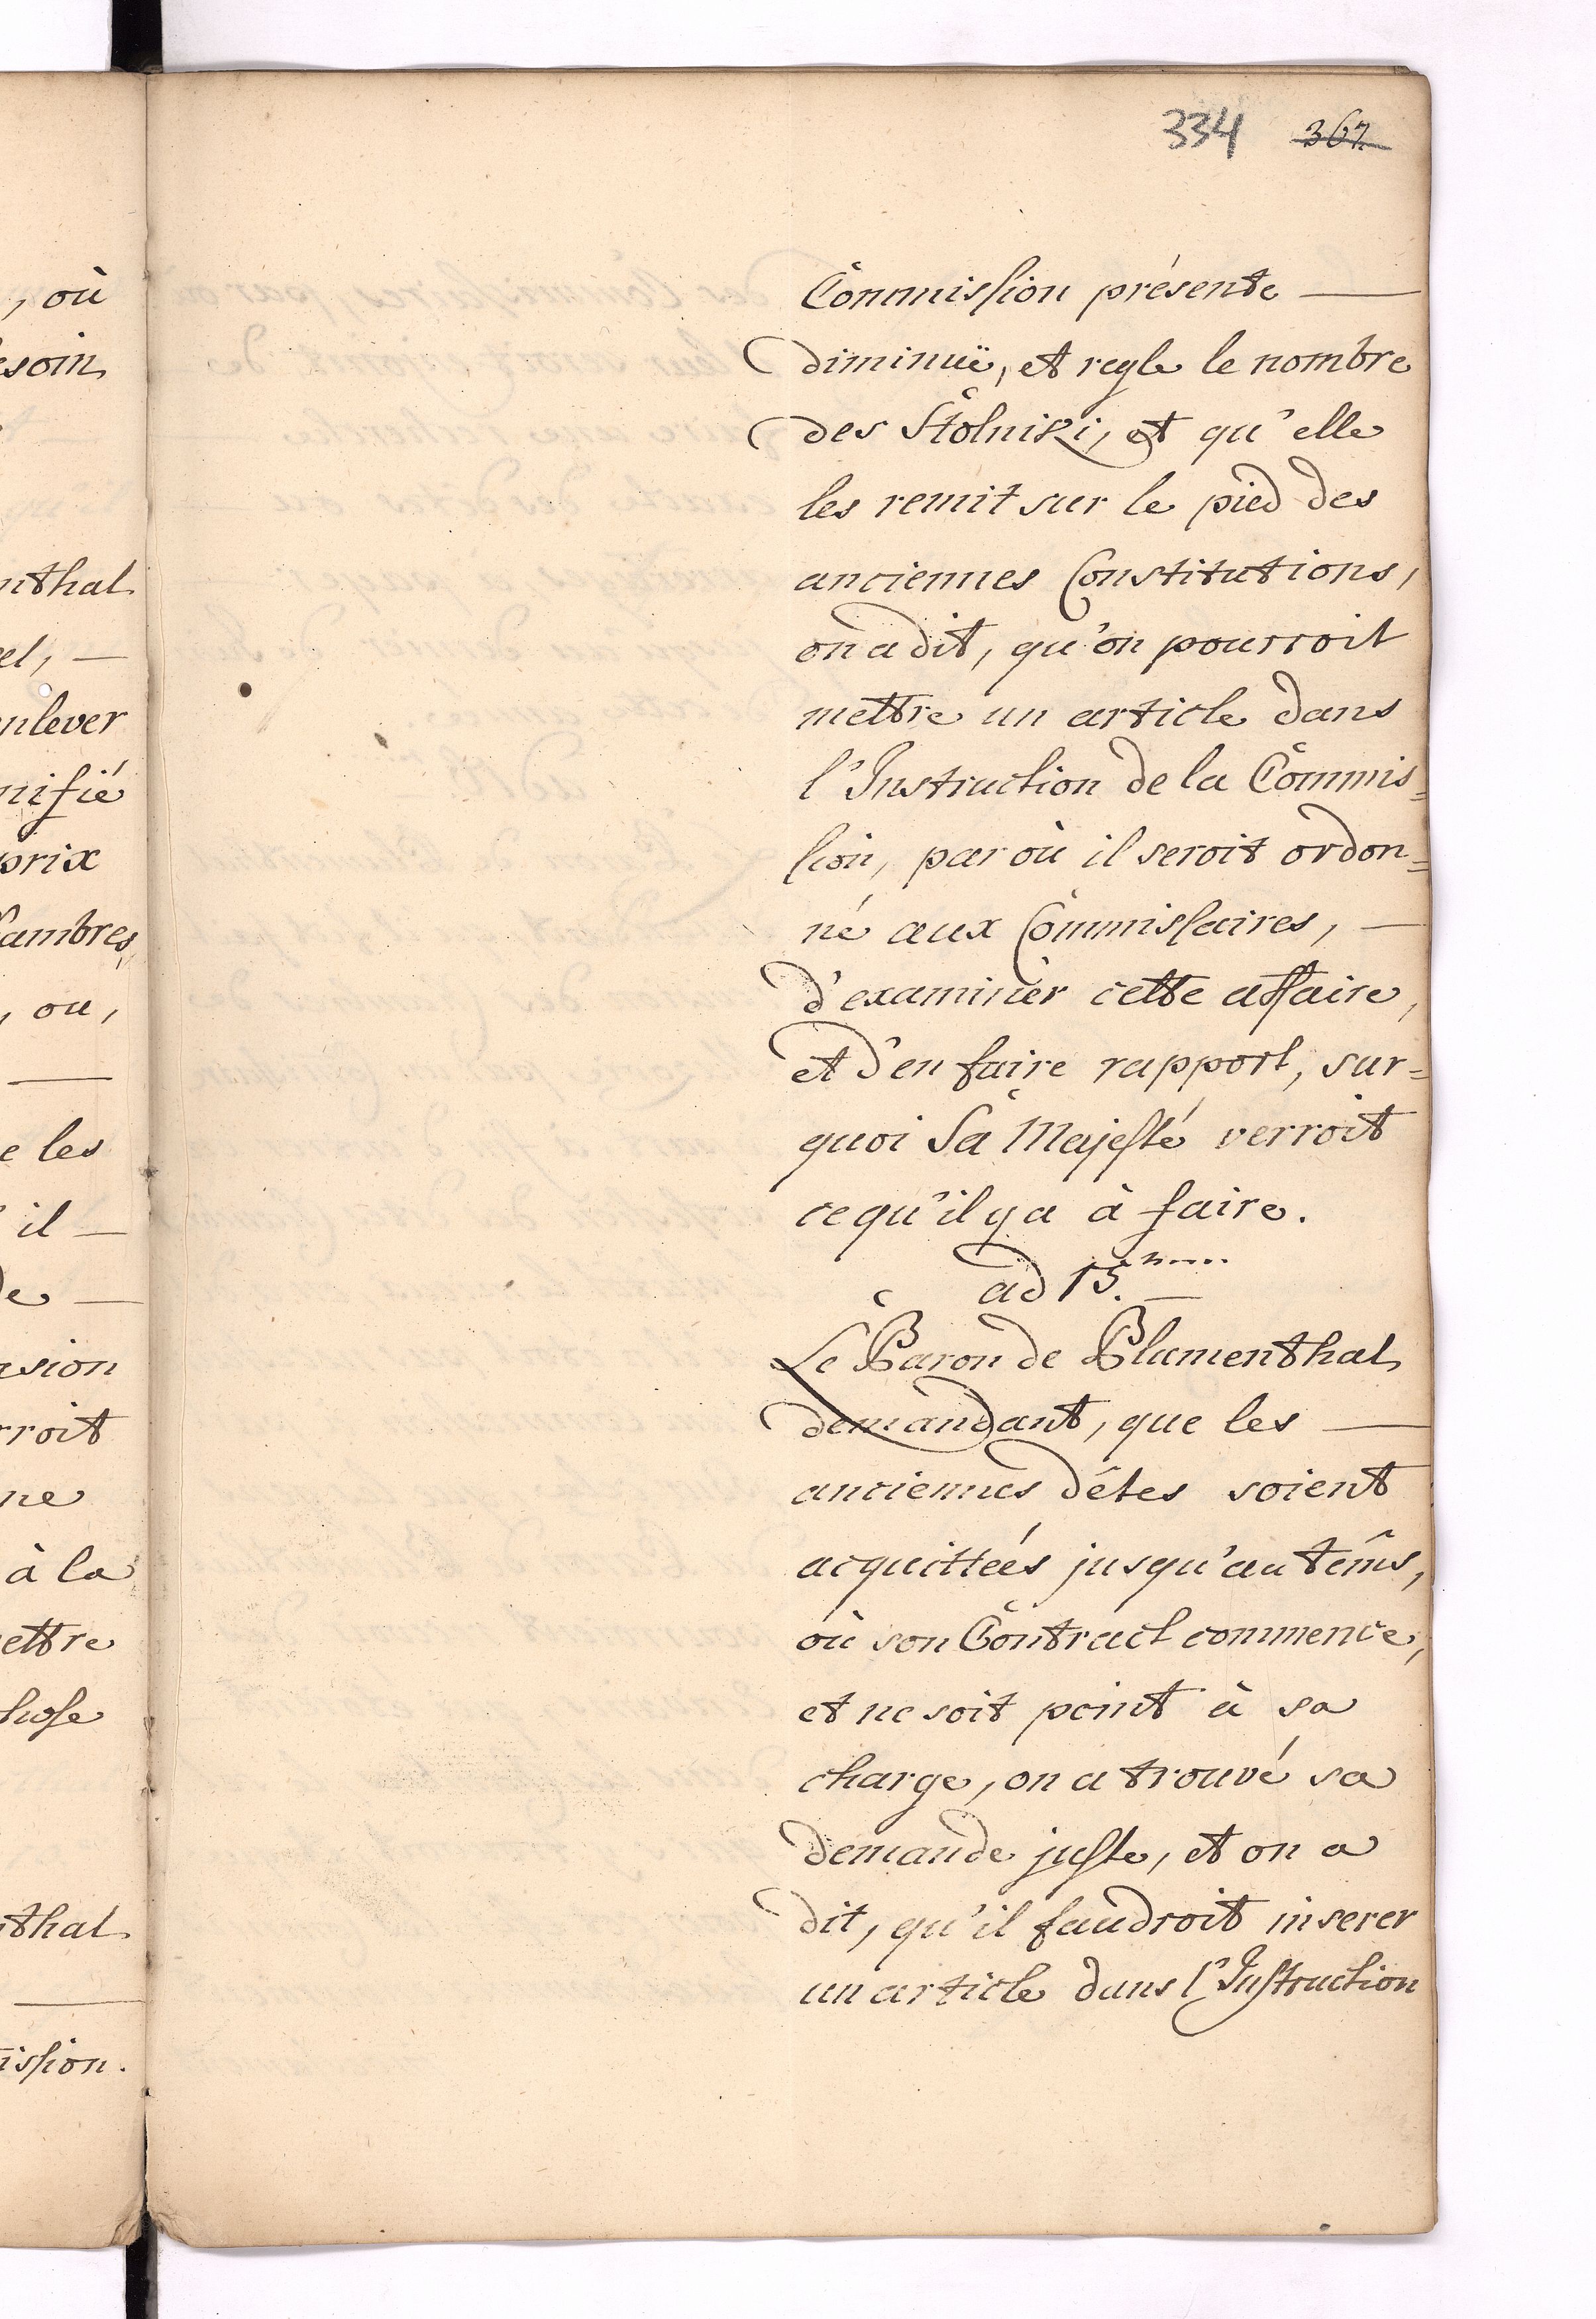 334 367.
, où
esoin
nthal
el, —
nlever
nifié
prix
ambres,
, ou,
e les
il —
de —
asion
rroit
ne
à la
ettre
hose
nthal
ission.
Commission présente —
diminuë, et regle le nombre
des Stolniki, et qu'elle
les remit sur le pied des
anciennes Constitutions,
on a dit, qu'on pourroit
mettre un article dans
l'Instruction de la Commis=
sion, par où il seroit ordon=
né aux Commissaires, —
d'examiner cette affaire,
et d'en faire rapport, sur=
quoi Sa Majesté verroit
ce qu'il y a à faire.
ad 15.
Le Baron de Blumenthal
demandant, que les —
anciennes dêtes soient
acquitteés jusqu'au têms,
où son Contract commence,
et ne soit point à sa
charge, on a trouvé sa
demande juste, et on a
dit, qu'il faudroit inserer
un article dans l'Instruction